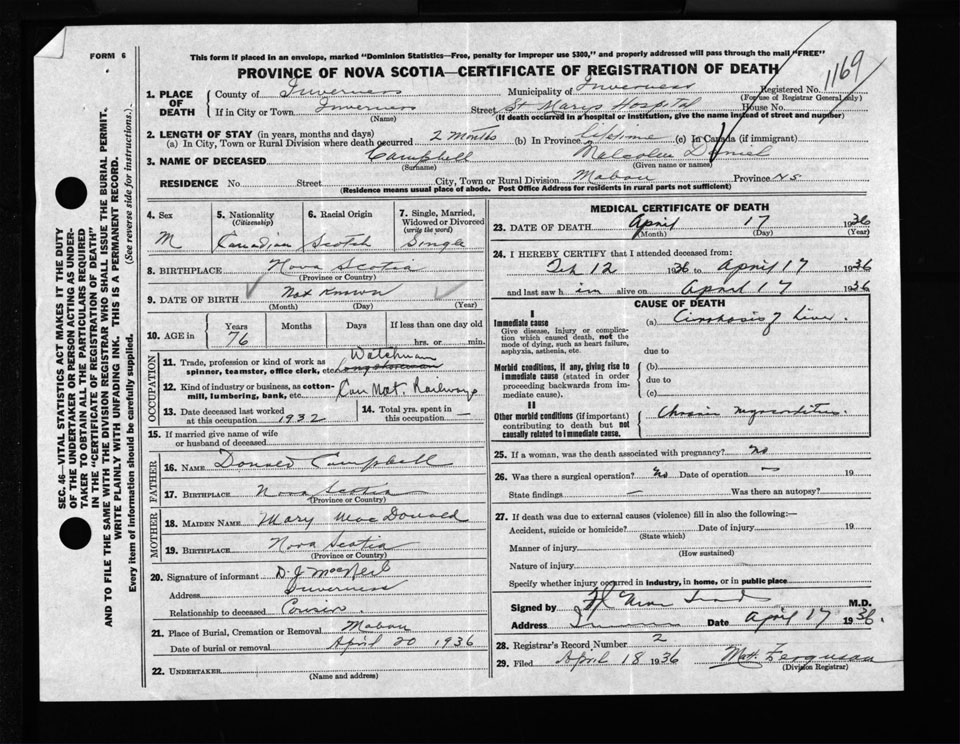 FORM 6
This form if placed in an envelope, marked "Dominion Statistics—Free, penalty for improper use $300," and properly addressed will pass through the mail "FREE"
PROVINCE OF NOVA SCOTIA—CERTIFICATE OF REGISTRATION OF DEATH
1169
1. PLACE OF DEATH
County of Inverness Municipality of Inverness Registered No.
(For use of Registrar General only)
If in City or Town Inverness Street St Marys Hospital House No.
(Name) (If death occurred in a hospital or institution, give the name instead of street and number)
2. LENGTH OF STAY (in years, months and days)
(a) In City, Town or Rural Division where death occurred 2 Months (b) In Province Lifetime (c) In Canada (if immigrant)
3. NAME OF DECEASED Campbell Malcolm Daniel
(Surname) (Given name or names)
RESIDENCE No. Street City, Town or Rural Division Mabou Province NS
(Residence means usual place of abode. Post Office Address for residents in rural parts not sufficient)
SEC. 46—VITAL STATISTICS ACT MAKES IT THE DUTY
OF THE UNDERTAKER OR PERSON ACTING AS UNDER-
TAKER TO OBTAIN ALL THE PARTICULARS REQUIRED
IN THE "CERTIFICATE OF REGISTRATION OF DEATH"
AND TO FILE THE SAME WITH THE DIVISION REGISTRAR WHO SHALL ISSUE THE BURIAL PERMIT.
WRITE PLAINLY WITH UNFADING INK. THIS IS A PERMANENT RECORD.
Every item of information should be carefully supplied. (See reverse side for instructions.)
4. Sex M
5. Nationality (Citizenship) Canadian
6. Racial Origin Scotch
7. Single, Married, Widowed or Divorced (write the word) Single
8. BIRTHPLACE Nova Scotia
(Province or Country)
9. DATE OF BIRTH Not Known
(Month) (Day) (Year)
10. AGE in Years 76 Months Days If less than one day old
hrs. or min.
OCCUPATION
11. Trade, profession or kind of work as spinner, teamster, office clerk, etc. Watchman Longshoreman
12. Kind of industry or business, as cotton-mill, lumbering, bank, etc. Can Nat. Railways
13. Date deceased last worked at this occupation 1932
14. Total yrs. spent in this occupation —
15. If married give name of wife or husband of deceased
FATHER
16. NAME Donald Campbell
17. BIRTHPLACE Nova Scotia
(Province or Country)
MOTHER
18. MAIDEN NAME Mary MacDonald
19. BIRTHPLACE Nova Scotia
(Province or Country)
20. Signature of informant D. J. MacNeil
Address Inverness
Relationship to deceased Cousin
21. Place of Burial, Cremation or Removal Mabou
Date of burial or removal April 20 1936
22. UNDERTAKER
(Name and address)
MEDICAL CERTIFICATE OF DEATH
23. DATE OF DEATH April 17 1936
(Month) (Day) (Year)
24. I HEREBY CERTIFY that I attended deceased from:
Feb 12 1936 to April 17 1936
and last saw him alive on April 17 1936
CAUSE OF DEATH
I
Immediate cause
Give disease, injury or complication which caused death, not the mode of dying, such as heart failure, asphyxia, asthenia, etc.
(a) Cirrhosis of Liver.
due to
Morbid conditions, if any, giving rise to immediate cause (stated in order proceeding backwards from immediate cause).
(b)
due to
(c)
II
Other morbid conditions (if important) contributing to death but not causally related to immediate cause.
Chronic myocarditis.
25. If a woman, was the death associated with pregnancy? no
26. Was there a surgical operation? No Date of operation — 19
State findings — Was there an autopsy?
27. If death was due to external causes (violence) fill in also the following:—
Accident, suicide or homicide? Date of injury 19
(State which)
Manner of injury
(How sustained)
Nature of injury
Specify whether injury occurred in industry, in home, or in public place
Signed by M.D.
Address Date April 17 1936.
28. Registrar's Record Number 2
29. Filed April 18 1936 Ferguson
(Division Registrar)